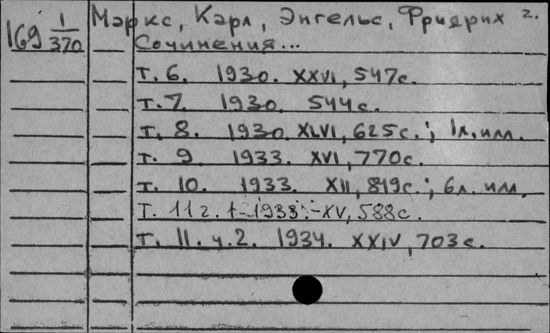 Маркс, Карл, Энгельс, Фридрих 2.
169 1/370
Сочинения...
т. 6. 1930. XXVI, 547с.
т. 7. 1930. 544с.
т. 8. 1930. XLVI, 625с.; 1л. илл.
т. 9. 1933. XVI, 770с.
т. 10. 1933. XII, 819с.; 6л. илл.
т. 11 1933. XV, 588с.
т. 11. ч.2. 1934. XXIV, 703с.